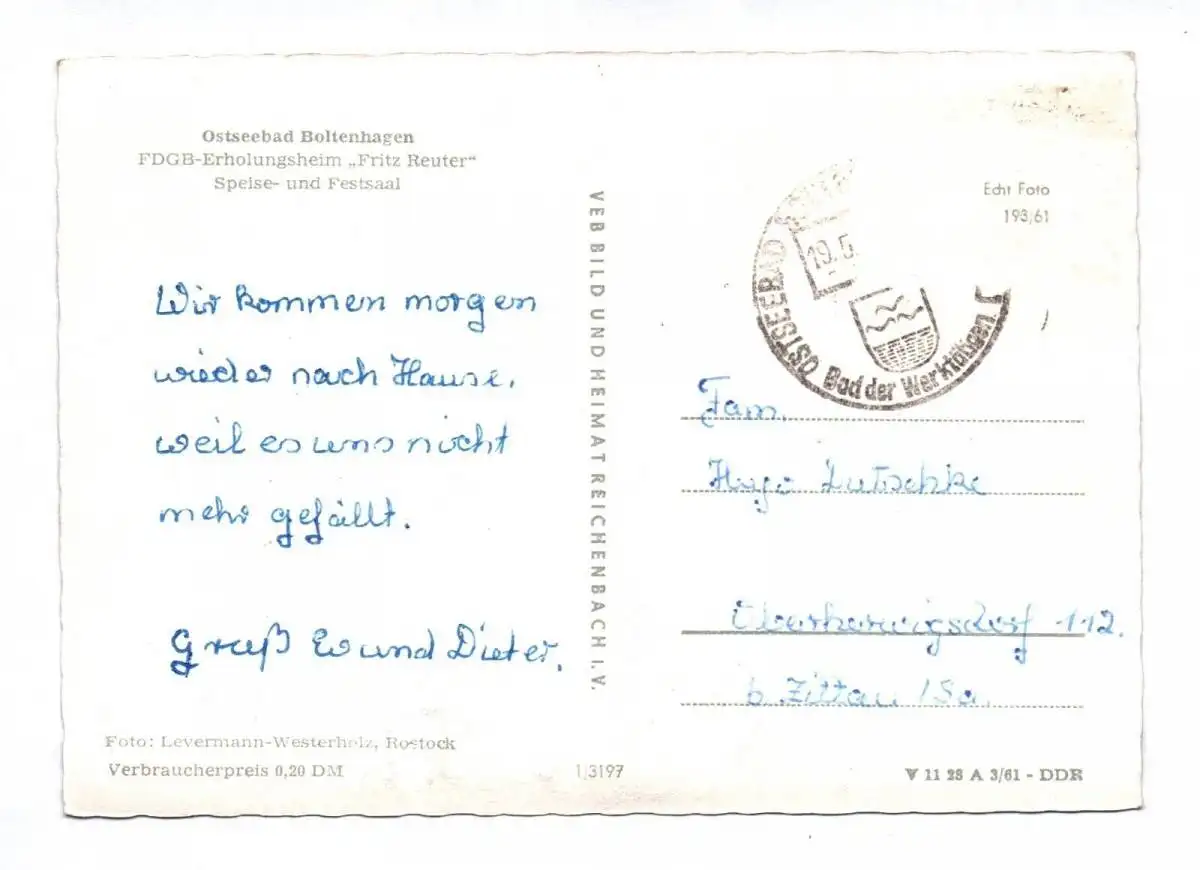 Ostseebad Boltenhagen
FDGB-Erholungsheim „Fritz Reuter“
Speise- und Festsaal
Wir kommen morgen
wieder nach Hause,
weil es uns nicht
mehr gefällt.
Gruß und Dieter.
Foto: Levermann-Westerholz, Rostock
Verbraucherpreis 0,20 DM
VEB BILD UND HEIMAT REICHENBACH I. V.
1/3197
Echt Foto
193/61
OSTSEEBAD
19.5
Bad der Werktätigen
Fam.
Hugo
Oberherwigsdorf 112.
b. Zittau /Sa.
V 11 28 A 3/61 - DDR